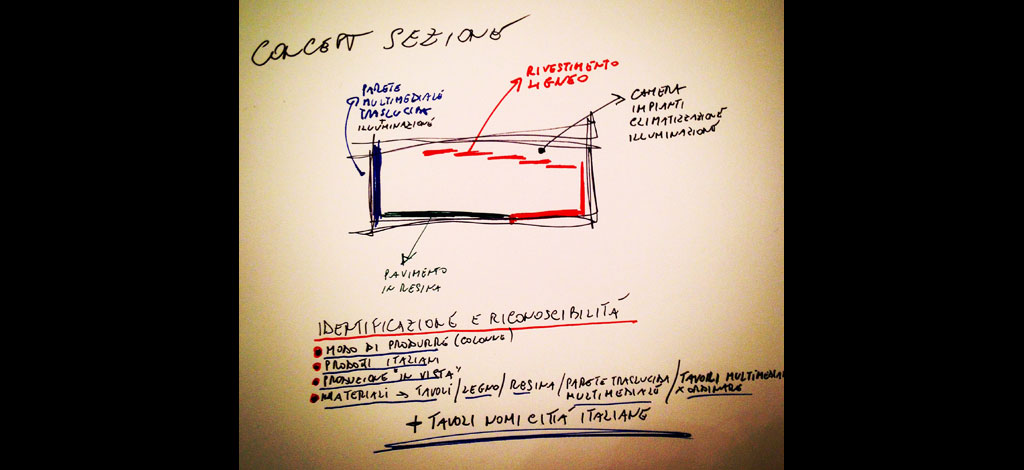 CONCEPT SEZIONE
PARETE
MULTIMEDIALE
TRASLUCIDA
ILLUMINAZIONE
RIVESTIMENTO
LIGNEO
CAMERA
IMPIANTI
CLIMATIZZAZIONE
ILLUMINAZIONE
PAVIMENTO
IN RESINA
IDENTIFICAZIONE E RICONOSCIBILITÀ
MODO DI PRODURRE (COLONNE)
PRODOTTI ITALIANI
PRODUZIONE "IN VISTA"
MATERIALI → TAVOLI / LEGNO / RESINA / PARETE TRASLUCIDA / TAVOLI MULTIMEDIA
MULTIMEDIALE × ORDINARE
+ TAVOLI NOMI CITTÀ ITALIANE